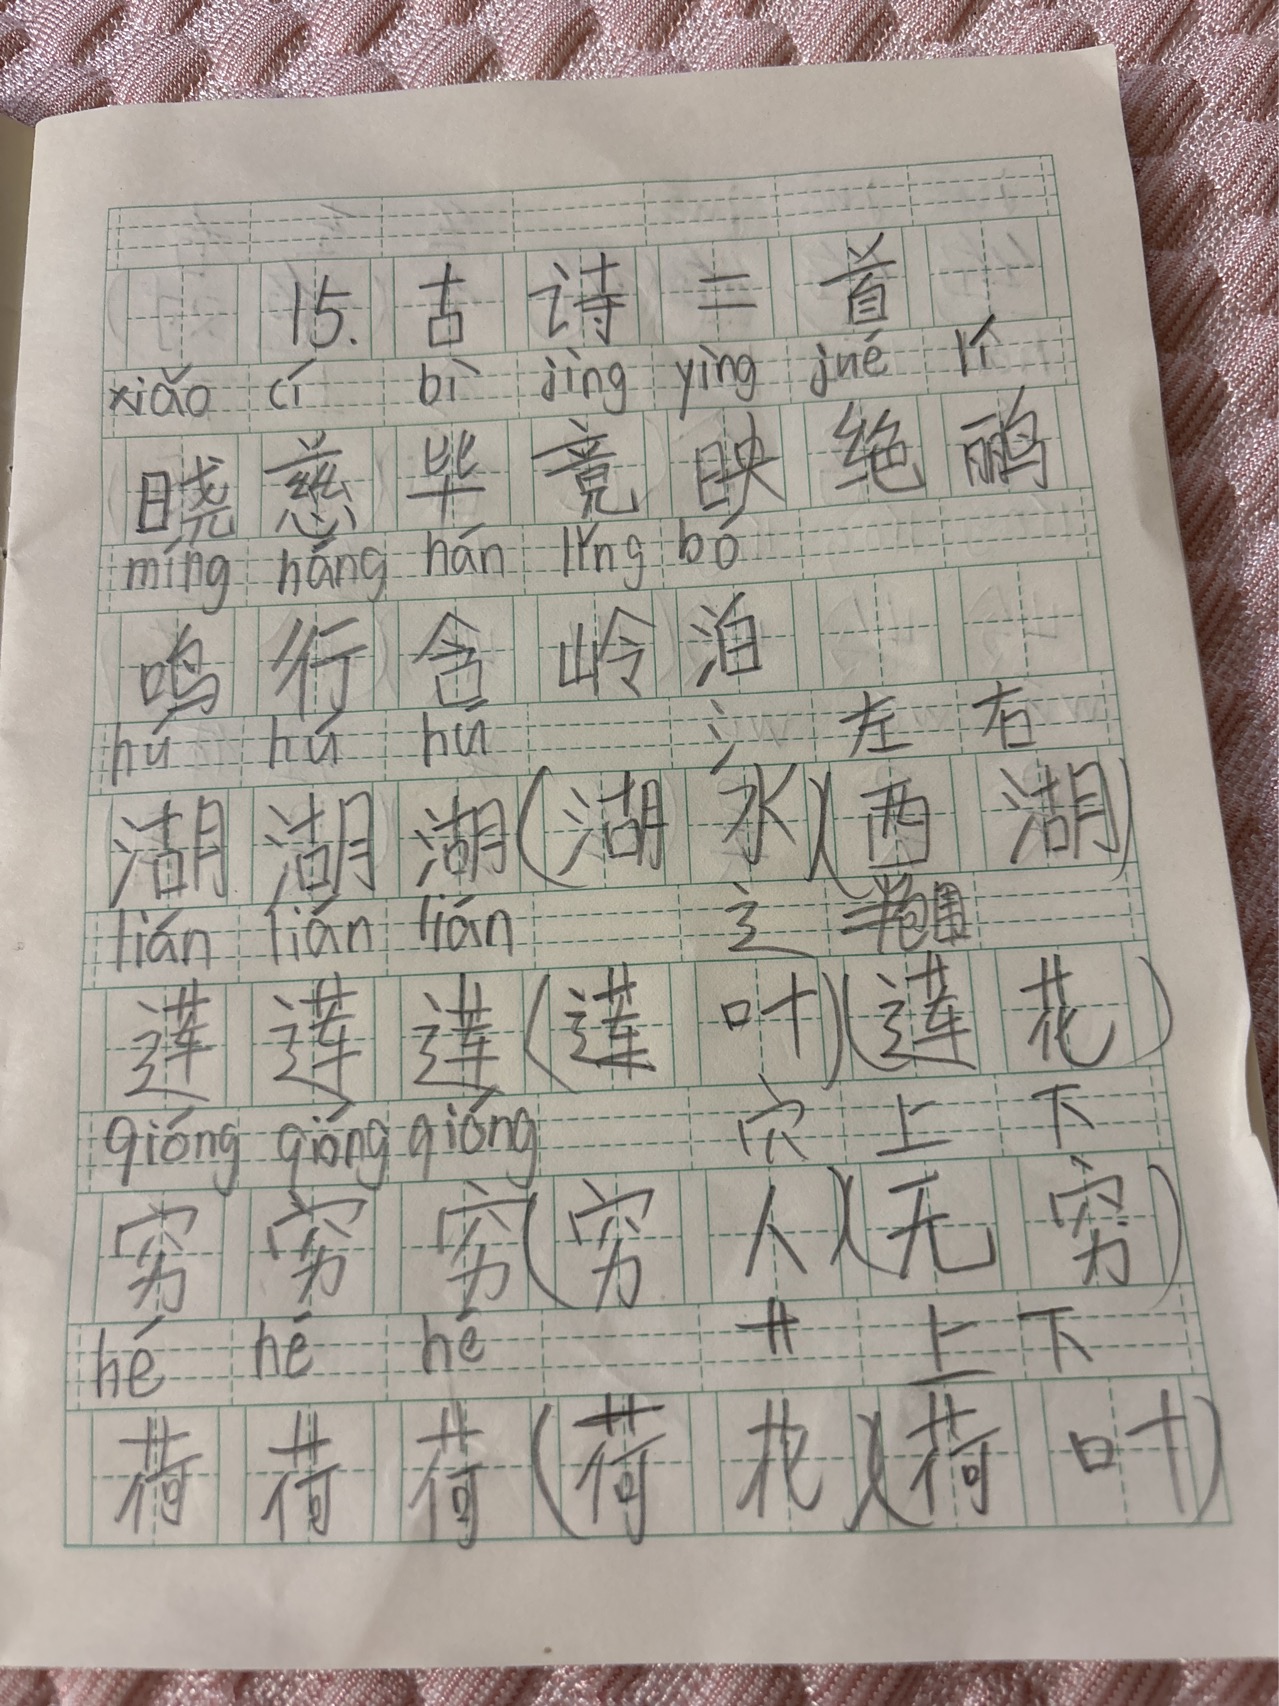 15.古诗二首
xiǎo cí bì jìng yìng jué lí
晓慈毕竟映绝鹂
míng háng hán lǐng bó
鸣行含岭泊
hú hú hú 氵左右
湖湖湖(湖水)(西湖)
lián lián lián 辶 半包围
莲莲莲(莲叶)(莲花)
qióng qióng qióng 穴上下
穷穷穷(穷人)(无穷)
hé hé hé 艹上下
荷荷荷(荷花)(荷叶)